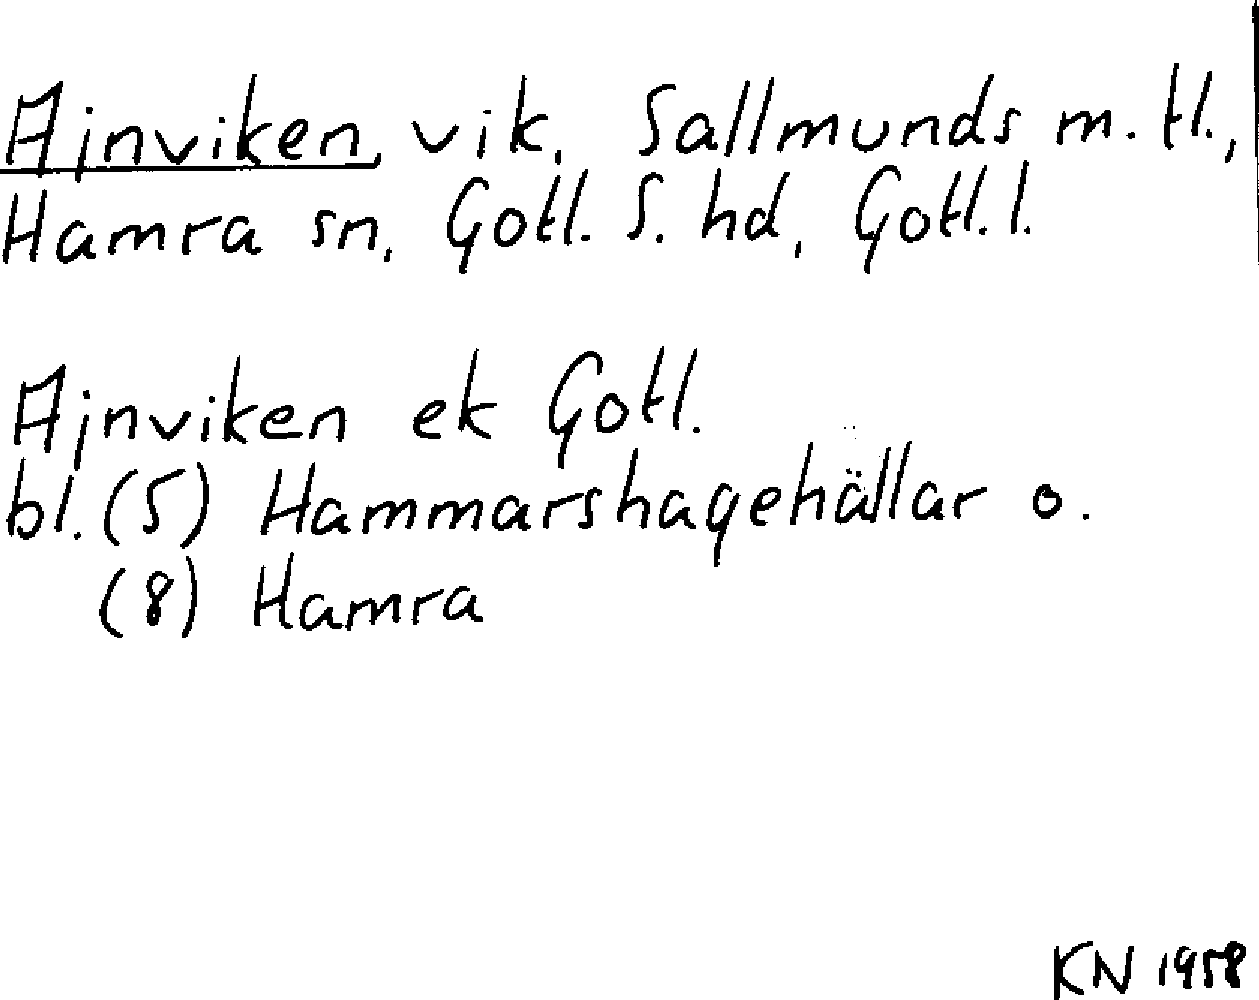 Ajnviken, vik, Sallmunds m. tl.,
Hamra sn, Gotl. S. hd, Gotl. l.
Ajnviken ek Gotl.
bl. (5) Hammarshagehällar o.
(8) Hamra
KN 1958